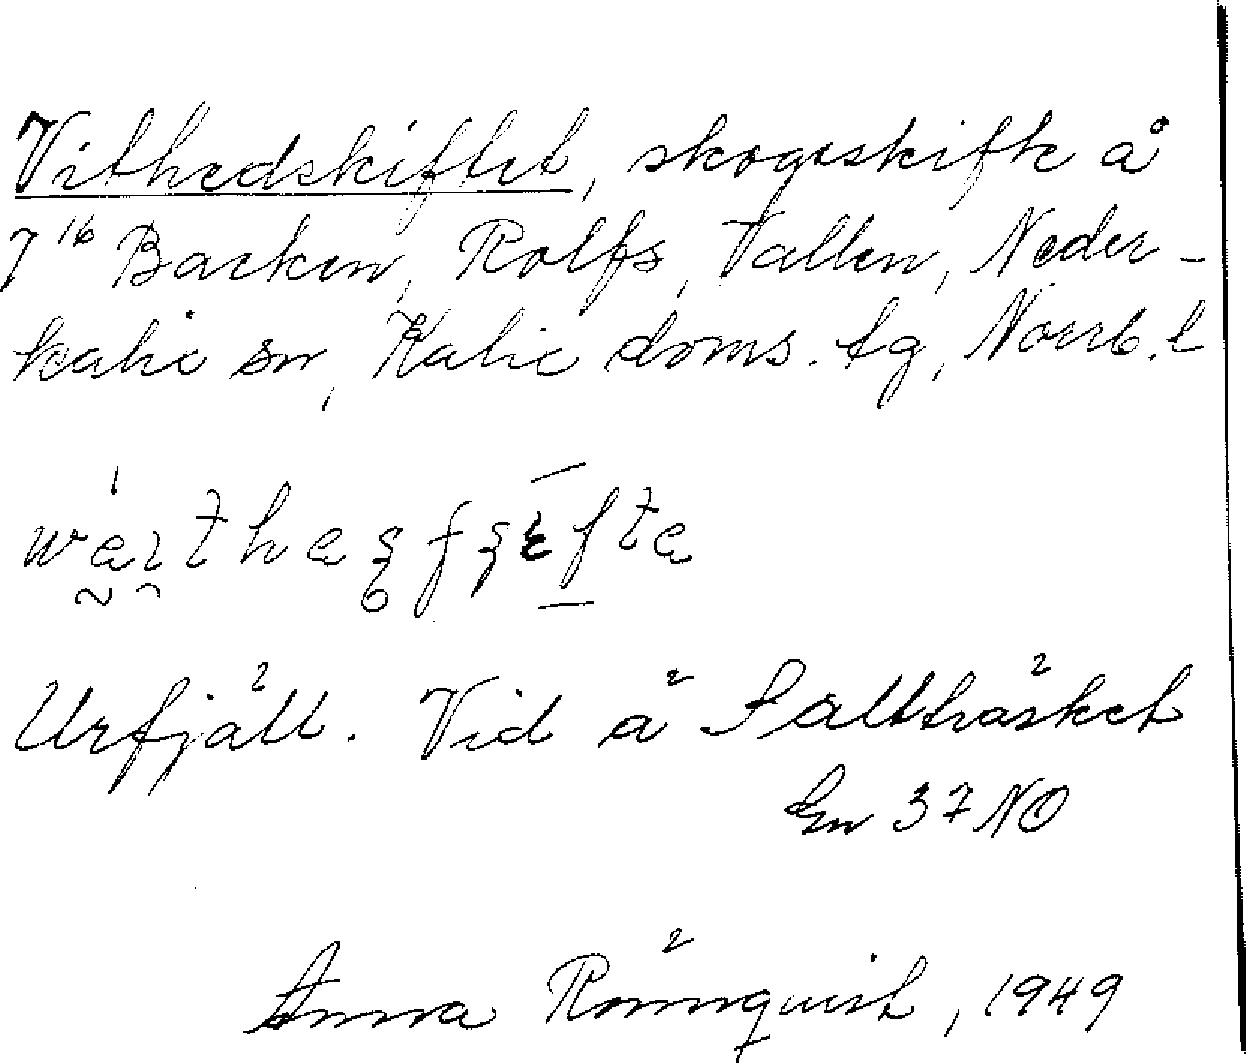 Vithedskiftet, skogsskifte å
7¹⁶ Backen, Rolfs, Vallen, Neder-
kalix sn, Kalix doms. tg, Norrb. l
Urfjäll. Vid ä Salträsket
En 37 NO
Anna Rönnquist, 1949